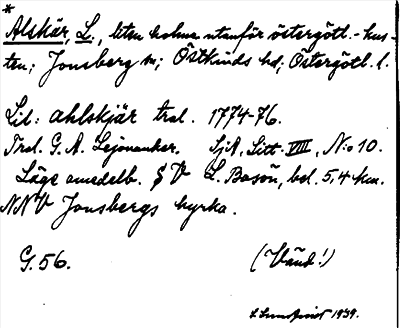 *
Alskär, L., liten holme utanför östergötl.-kus-
ten; Jonsberg sn; Östkinds hd; Östergötl. l.
Lit: ahlskjär tral. 1774-76.
Tral. G. A. Lejonanker. SjA, Litt. VIII, N:o 10.
Läge omedelb. S V L. Bosön, bel. 5,4 km.
NNV Jonsbergs kyrka.
G. 56. (Vänd!)
1939.